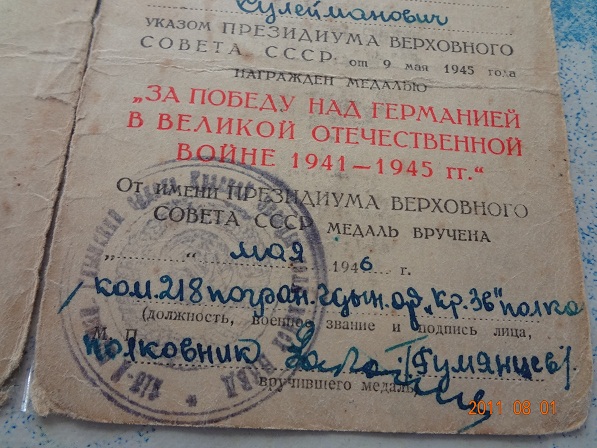 Сулейманович
УКАЗОМ ПРЕЗИДИУМА ВЕРХОВНОГО
СОВЕТА СССР от 9 мая 1945 года
НАГРАЖДЕН МЕДАЛЬЮ
„ЗА ПОБЕДУ НАД ГЕРМАНИЕЙ
В ВЕЛИКОЙ ОТЕЧЕСТВЕННОЙ
ВОЙНЕ 1941—1945 гг.“
От имени ПРЕЗИДИУМА ВЕРХОВНОГО
СОВЕТА СССР МЕДАЛЬ ВРУЧЕНА
„ “ мая 1946 г.
ком. 218 погран. орд. „Кр. Зв" полка
(должность, военное звание и подпись лица,
М. П.
полковник (Румянцев)
вручившего медаль)
2011 08 01